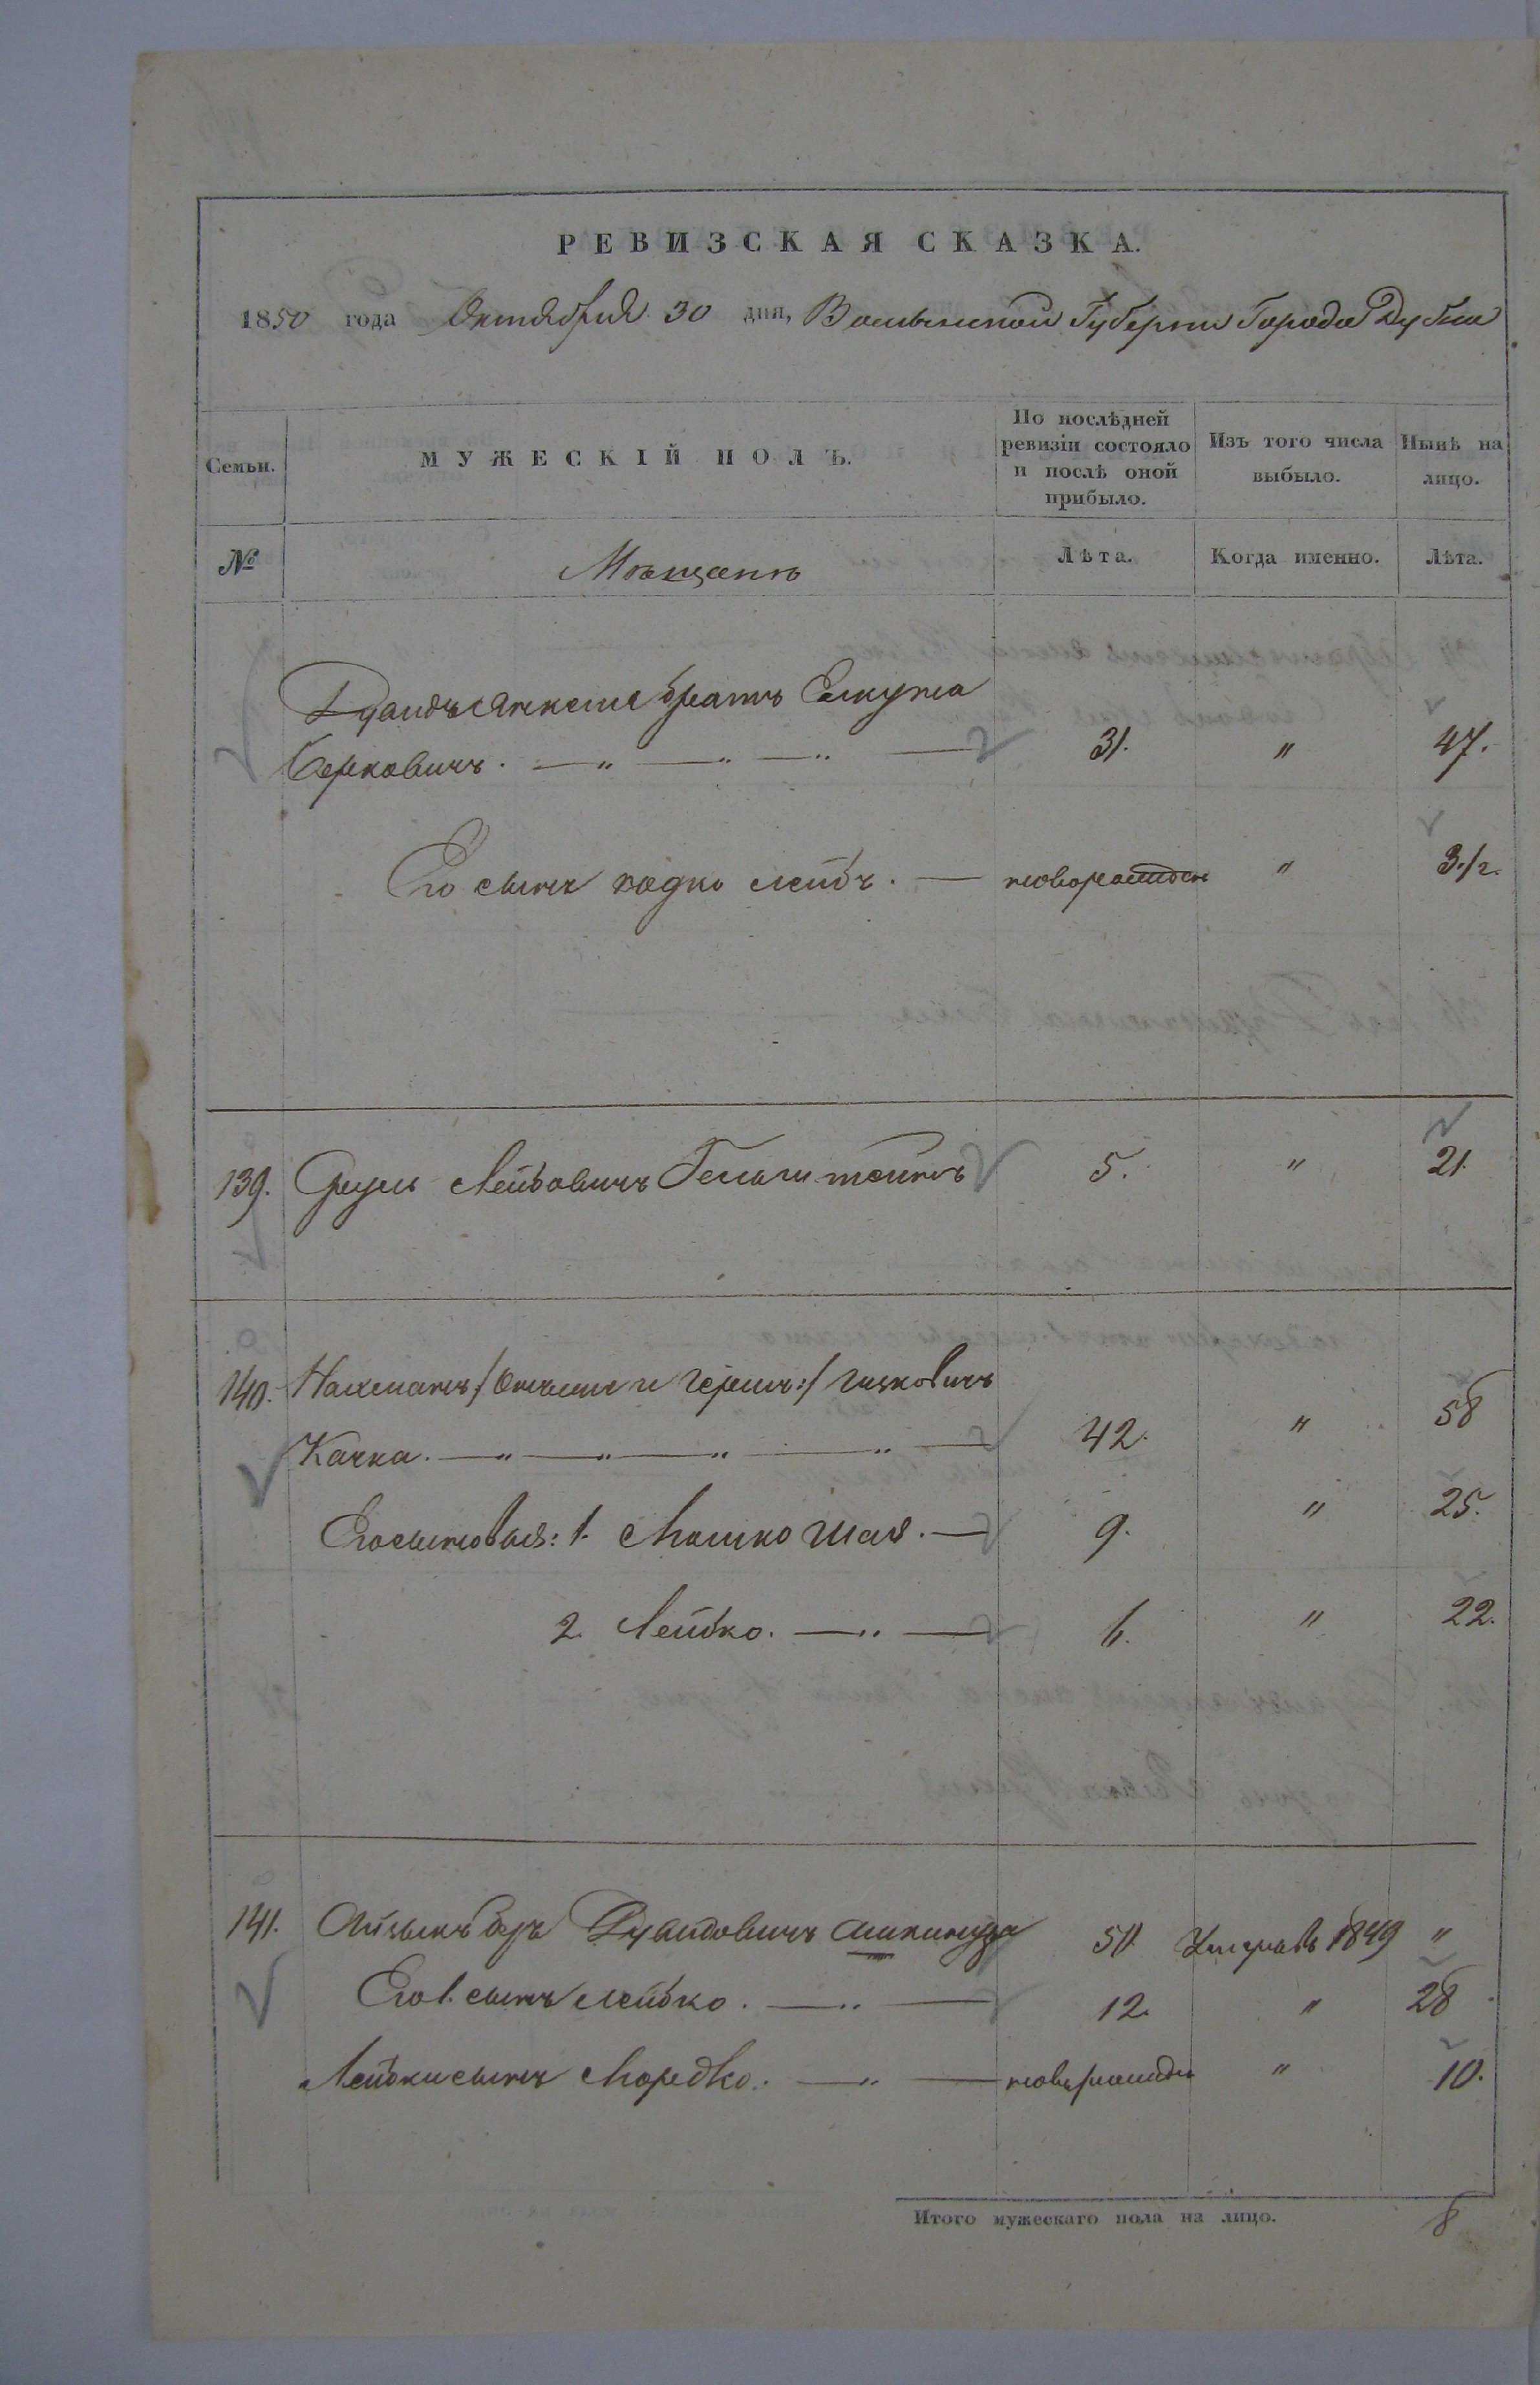 РЕВИЗСКАЯ СКАЗКА.
1850 года Октября 30 дня, Волынской Губернии Города Дубна
Семьи.
МУЖЕСКІЙ ПОЛЪ.
По послѣдней ревизіи состояло и послѣ оной прибыло.
Изъ того числа выбыло.
Нынѣ на лицо.
№
Мѣщанъ
Лѣта.
Когда именно.
Лѣта.
братъ
Берковичъ. — " — " — " — 31. " 47.
Его сынъ Лейбъ. — новорожден " 3 1/2.
139. Сруль Лейбовичъ 5. " 21.
140. Нахманъ /: Онъ же и Герша :/ Ицковичъ
Качка. — " — " — " — " — 42. " 58
Его сыновья: 1. Мошко Шая. — 9. " 25.
2. Лейбко. — " — 6. " 22.
141. Айзыкъ Беръ Дувидовичъ 50 Умеръ въ 1849 "
Его 1. сынъ Лейбко. — " — 12. " 28
Лейбки сынъ Мордко. — " — новорожден " 10.
Итого мужескаго пола на лицо. 8